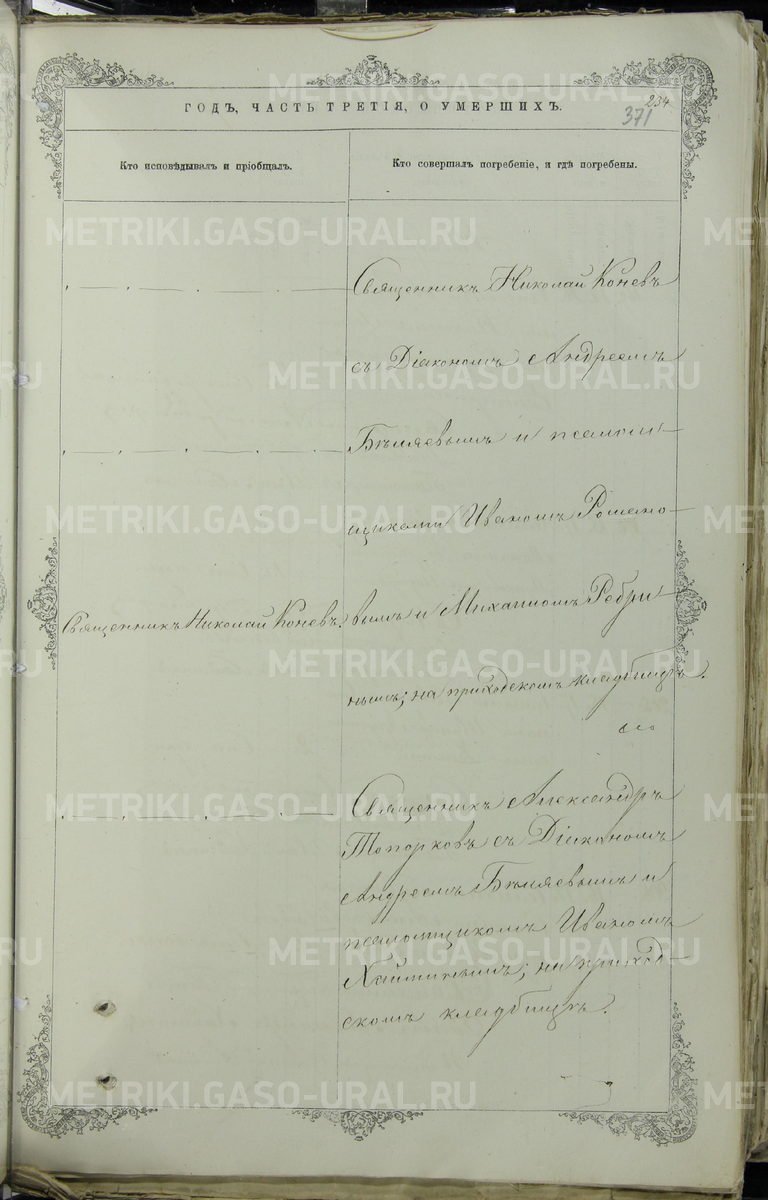 ГОДЪ, ЧАСТЬ ТРЕТІЯ, О УМЕРШИХЪ.
234
371
Кто исповѣдывалъ и пріобщалъ.
Кто совершалъ погребеніе, и гдѣ погребены.
Священникъ Николай Коневъ
съ Діакономъ Андреемъ
Бѣляевымъ и псаломщиками
Иваномъ Романо-
вымъ и Михаиломъ Ребри-
нымъ; на приходскомъ кладбищѣ.
Священникъ Николай Коневъ.
Священникъ Александръ
Топорковъ съ Діакономъ
Андреемъ Бѣляевымъ и
псаломщикомъ Иваномъ
на приход-
скомъ кладбищѣ.
METRIKI.GASO-URAL.RU